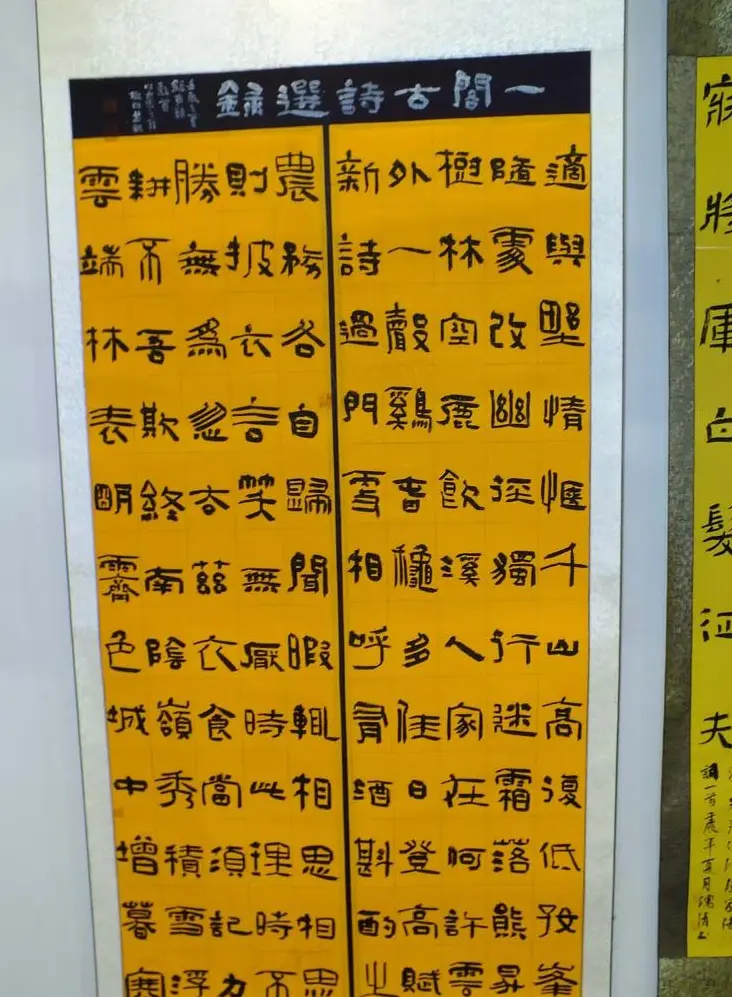 一閣古詩選録
適與野情愜千山高復低好峯
隨處改幽徑獨行迷霜落熊昇
樹林空鹿飲溪人家在何許雲
外一聲鷄春穐多佳日登高賦
新詩過門更相呼有酒斟酌之
農務各自歸閒暇輒相思相思
則披衣言笑無厭時此理時不
勝無爲忽去茲衣食當須記力
耕不吾欺終南陰嶺秀積雪浮
雲端林表明霽色城中增暮寒
寐將軍白髮征夫